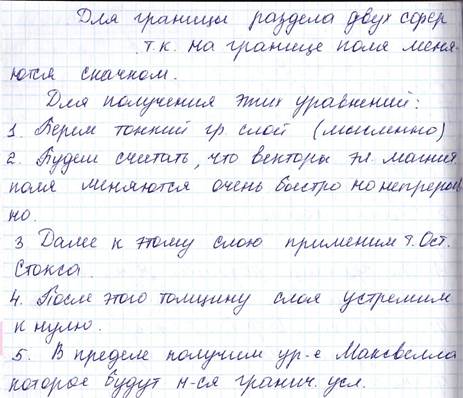 Для границы раздела двух сфер
т.к. на границе поля меня-
ются скачком.
Для получения этих уравнений:
1. Берем тонкий гр. слой (мысленно)
2. Будем считать, что векторы эл. магнит.
поля меняются очень быстро но непрерыв
но.
3 Далее к этому слою применим т. Ост.
Стокса.
4. После этого толщину слоя устремим
к нулю.
5. В пределе получим ур-е Максвелла
которое будут н-ся гранич. усл.